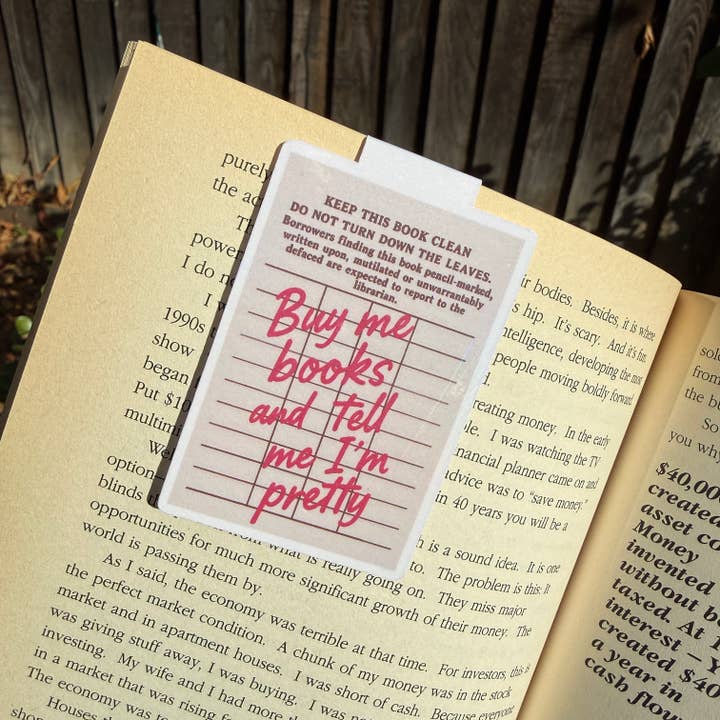 KEEP THIS BOOK CLEAN
DO NOT TURN DOWN THE LEAVES.
Borrowers finding this book pencil-marked,
written upon, mutilated or unwarrantably
defaced are expected to report to the
librarian.
Buy me
books
and tell
me I'm
pretty
purely
the
power
I do
I
1990s
show
began
Put $10
option
blinds
ir bodies. Besides, it is where
s hip. It's scary. And it's fun.
ntelligence, developing the most
people moving boldly forward
reating money. In the early
le. I was watching the TV
nancial planner came on and
dvice was to "save money."
in 40 years you will be a
h is a sound idea. It is one
to. The problem is this: It
from what is really going on. They miss major
opportunities for much more significant growth of their money. The
world is passing them by.
As I said, the economy was terrible at that time. For investors, this is
the perfect market condition. A chunk of my money was in the stock
market and in apartment houses. I was short of cash. Because everyone
was giving stuff away, I was buying. I was
investing. My wife and I had more
in a market that was rising
The economy was
Houses
from
So
you why
$40,000
created
asset
Money
invented
without
taxed. At
interest —
created $40
a year in
cash flow